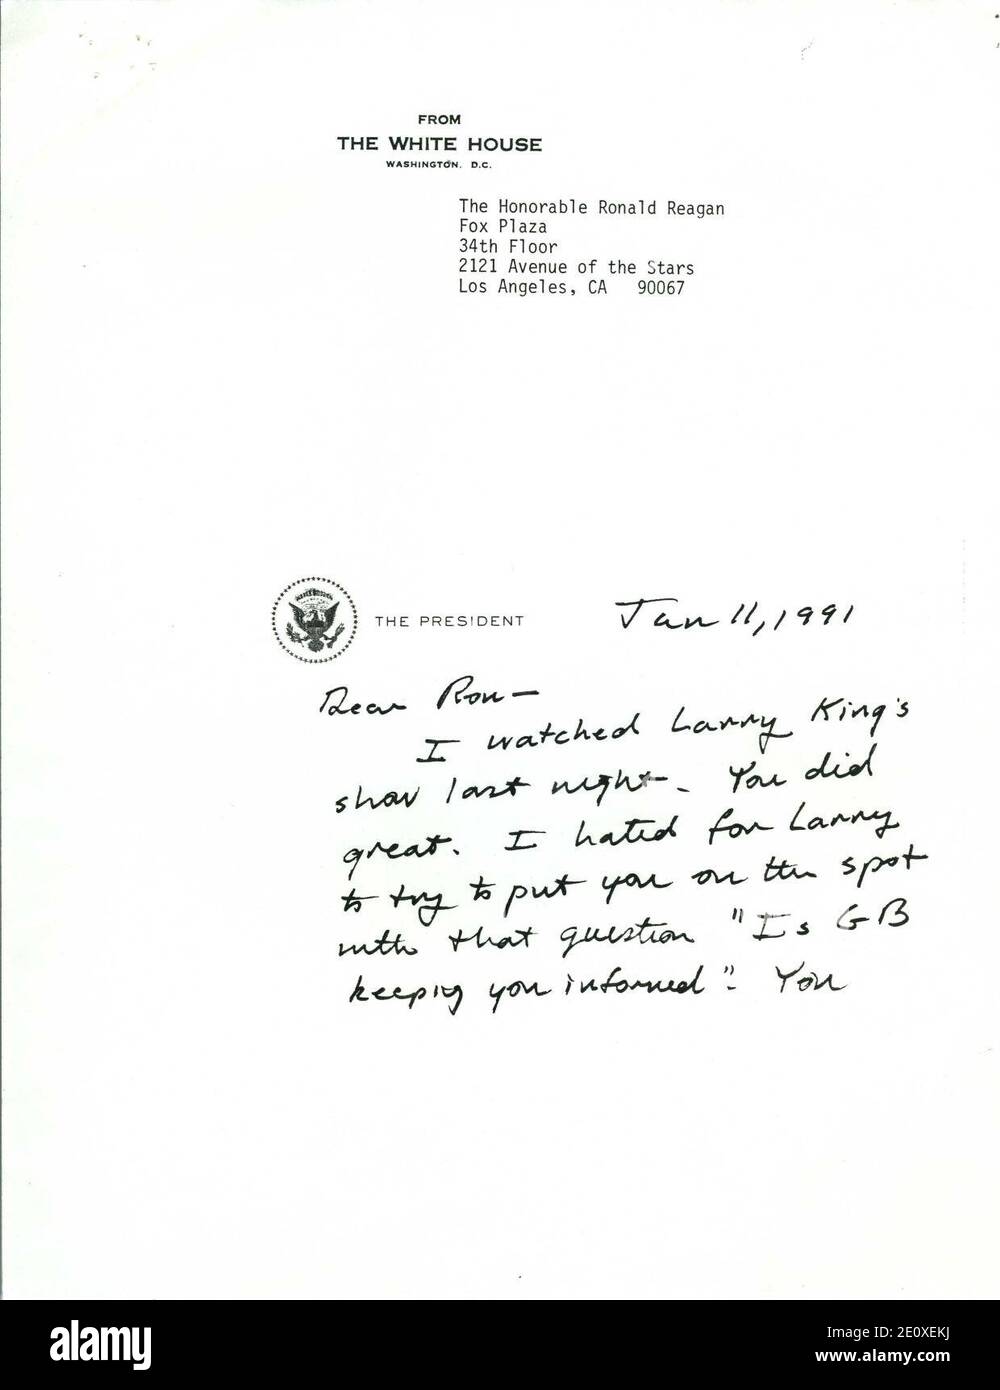 FROM
THE WHITE HOUSE
WASHINGTON, D.C.
The Honorable Ronald Reagan
Fox Plaza
34th Floor
2121 Avenue of the Stars
Los Angeles, CA 90067
THE PRESIDENT
Jan 11, 1991
Dear Ron—
I watched Larry King's
show last night. You did
great. I hated for Larry
to try to put you on the spot
with that question "Is GB
keeping you informed". You
alamy
Image ID: 2E0XEKJ
www.alamy.com